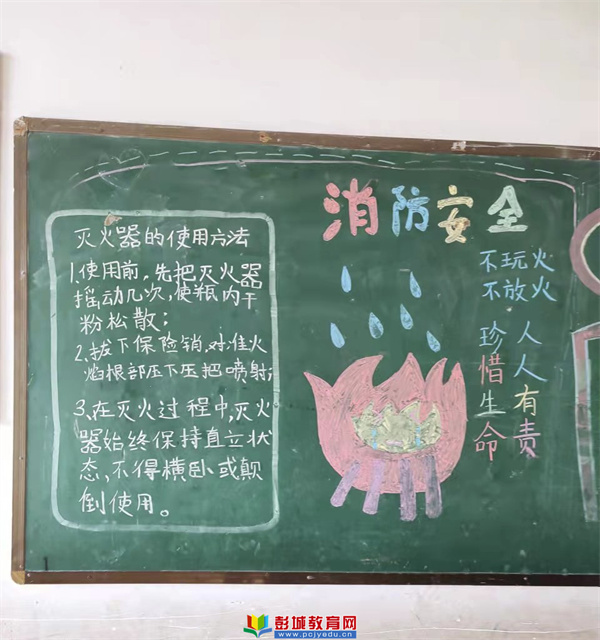 消防安全
灭火器的使用方法
1.使用前,先把灭火器
摇动几次,使瓶内干
粉松散;
2.拔下保险销,对准火
焰根部压下压把喷射;
3.在灭火过程中,灭火
器始终保持直立状
态,不得横卧或颠
倒使用。
不玩火
不放火
珍惜生命
人人有责
彭城教育网
www.pcjyedu.cn